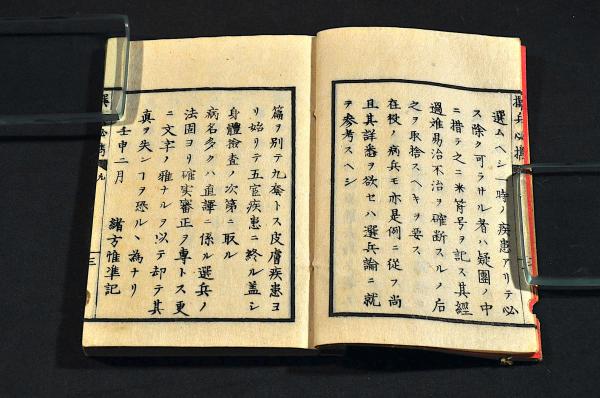 選ムヘシ一時ノ疾患アリテ必
ス除ク可ラサル者ハ疑團ノ中
ニ措テ之ニ米符号ヲ記ス其經
過難易治不治ヲ確断スルノ后
之ヲ取捨スヘキヲ要ス
在役ノ病兵モ亦是例ニ從フ尚
且其詳悉ヲ欲セハ選兵論ニ就
ヲ参考スヘシ
篇ヲ別テ九套トス皮膚疾患ヨ
リ始リテ五官疾患ニ終ル盖シ
身體檢査ノ次第ニ取ル
病名多クハ直譯ニ係ル選兵ノ
法固ヨリ確実審正ヲ專トス更
ニ文字ノ雅ナルヲ以テ却テ其
真ヲ失ンヿヲ恐ルヽ為ナリ
壬申二月 諸方惟準記
三